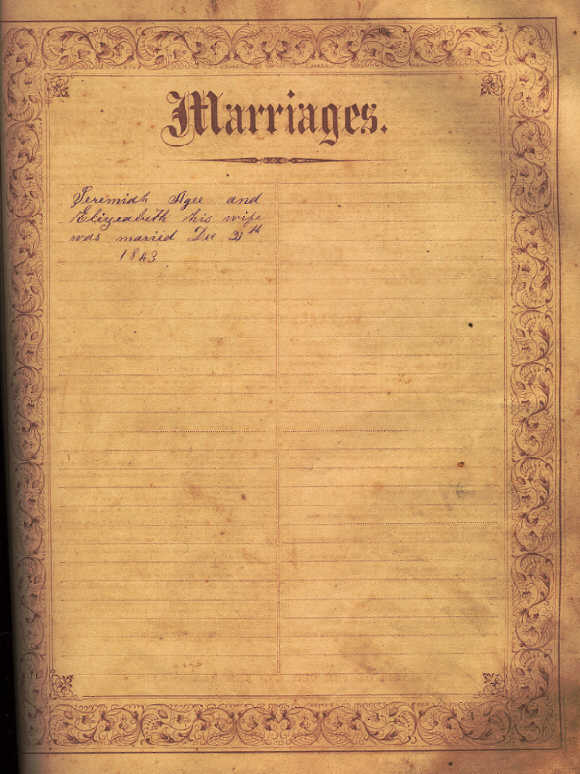 Marriages.
Jeremiah Agee and
Elizeabeth his wife
was maried Dec 31th
1843